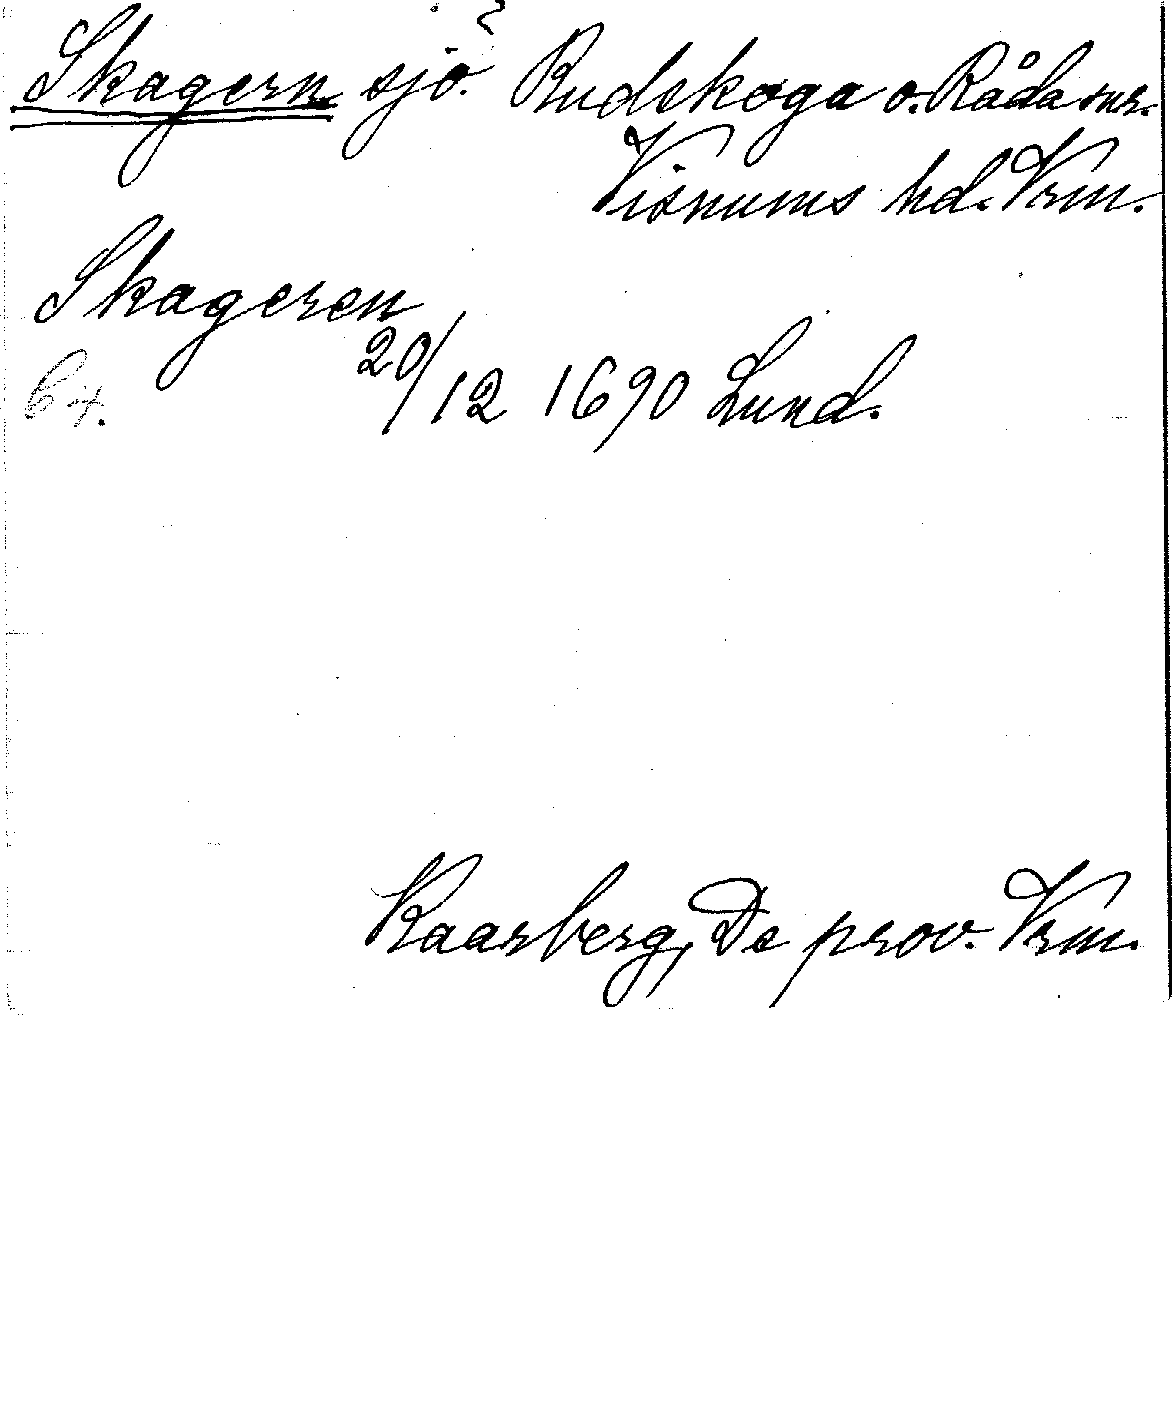 Skagern sjö. Rudskoga o. Råda snr.
Visnums hd. Vrm.
Skageren
64. 20/12 1690 Lund.
Kaarberg, De prov. Vrm.